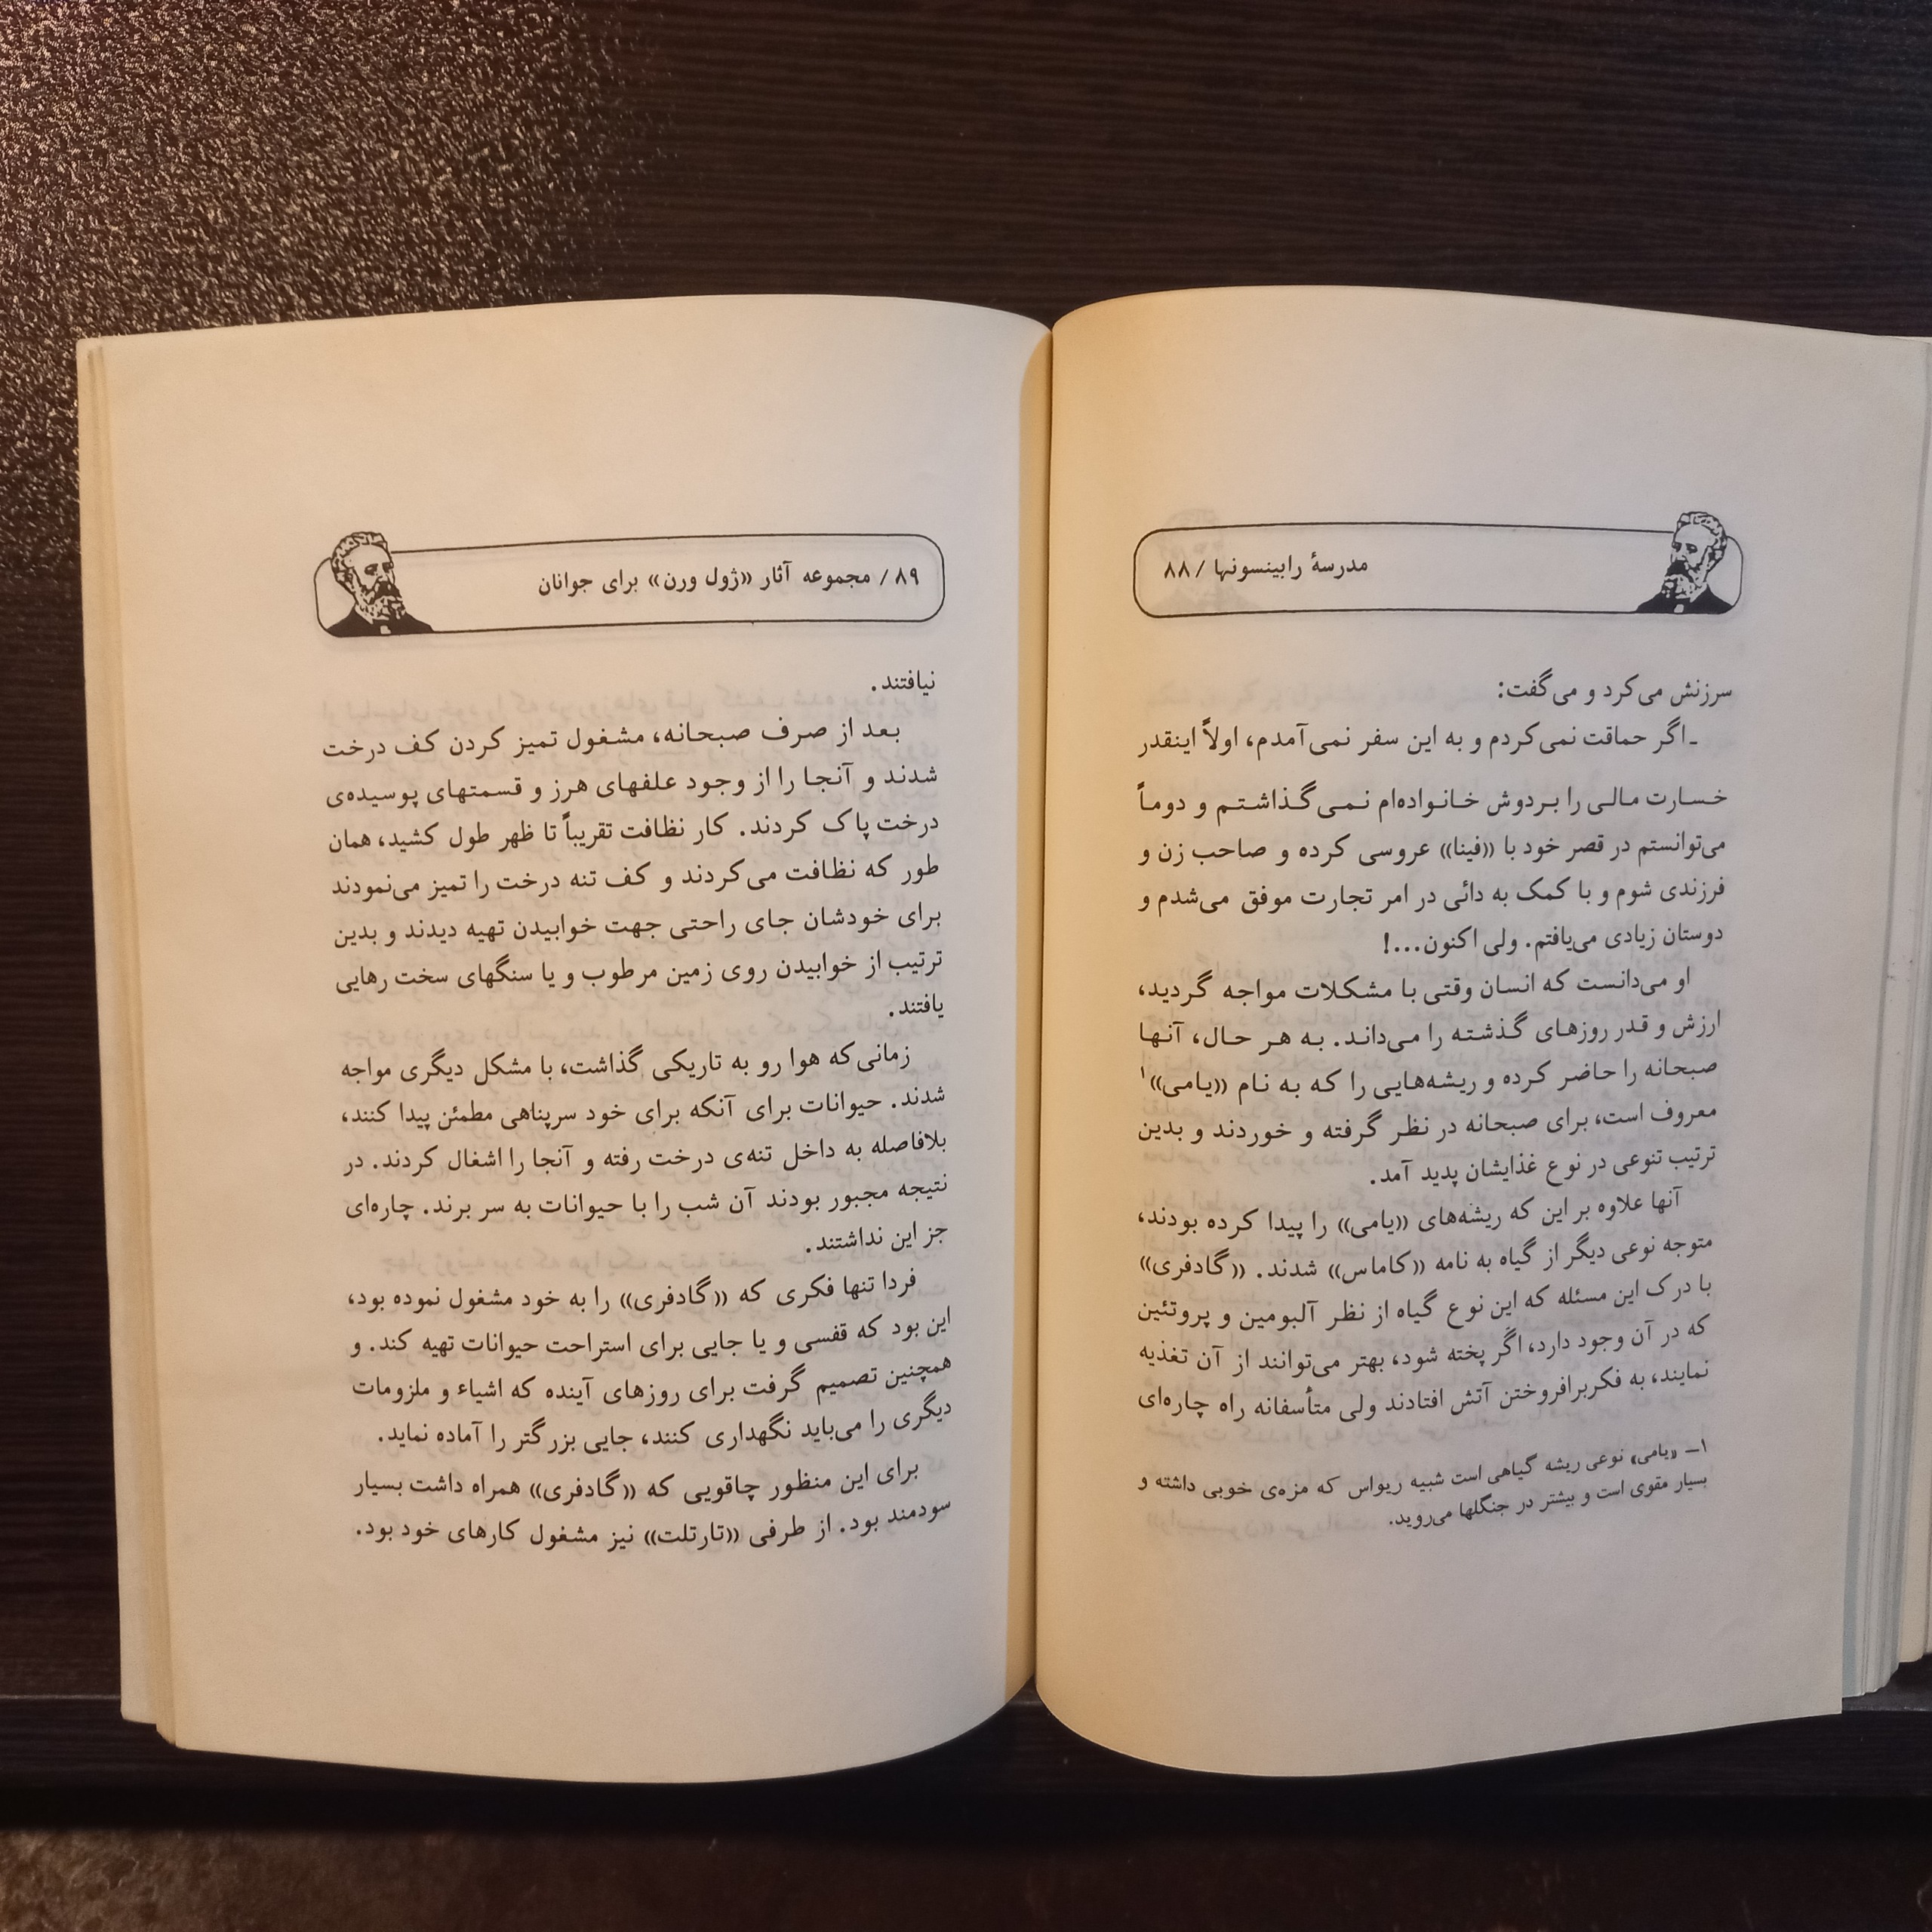 مدرسهٔ رابینسونها / ۸۸
سرزنش می‌کرد و می‌گفت:
ـ اگر حماقت نمی‌کردم و به این سفر نمی‌آمدم، اولاً اینقدر
خسارت مالی را بردوش خانواده‌ام نمی‌گذاشتم و دوماً
می‌توانستم در قصر خود با «فینا» عروسی کرده و صاحب زن و
فرزندی شوم و با کمک به دائی در امر تجارت موفق می‌شدم و
دوستان زیادی می‌یافتم. ولی اکنون...!
او می‌دانست که انسان وقتی با مشکلات مواجه گردید،
ارزش و قدر روزهای گذشته را می‌داند. به هر حال، آنها
صبحانه را حاضر کرده و ریشه‌هایی را که به نام «یامی»۱
معروف است، برای صبحانه در نظر گرفته و خوردند و بدین
ترتیب تنوعی در نوع غذایشان پدید آمد.
آنها علاوه بر این که ریشه‌های «یامی» را پیدا کرده بودند،
متوجه نوعی دیگر از گیاه به نامه «کاماس» شدند. «گادفری»
با درک این مسئله که این نوع گیاه از نظر آلبومین و پروتئین
که در آن وجود دارد، اگر پخته شود، بهتر می‌توانند از آن تغذیه
نمایند، به فکربرافروختن آتش افتادند ولی متأسفانه راه چاره‌ای
۱– «یامی» نوعی ریشه گیاهی است شبیه ریواس که مزه‌ی خوبی داشته و
بسیار مقوی است و بیشتر در جنگلها می‌روید.
۸۹ / مجموعه آثار «ژول ورن» برای جوانان
نیافتند.
بعد از صرف صبحانه، مشغول تمیز کردن کف درخت
شدند و آنجا را از وجود علفهای هرز و قسمتهای پوسیده‌ی
درخت پاک کردند. کار نظافت تقریباً تا ظهر طول کشید، همان
طور که نظافت می‌کردند و کف تنه درخت را تمیز می‌نمودند
برای خودشان جای راحتی جهت خوابیدن تهیه دیدند و بدین
ترتیب از خوابیدن روی زمین مرطوب و یا سنگهای سخت رهایی
یافتند.
زمانی‌که هوا رو به تاریکی گذاشت، با مشکل دیگری مواجه
شدند. حیوانات برای آنکه برای خود سرپناهی مطمئن پیدا کنند،
بلافاصله به داخل تنه‌ی درخت رفته و آنجا را اشغال کردند. در
نتیجه مجبور بودند آن شب را با حیوانات به سر برند. چاره‌ای
جز این نداشتند.
فردا تنها فکری که «گادفری» را به خود مشغول نموده بود،
این بود که قفسی و یا جایی برای استراحت حیوانات تهیه کند. و
همچنین تصمیم گرفت برای روزهای آینده که اشیاء و ملزومات
دیگری را می‌باید نگهداری کنند، جایی بزرگتر را آماده نماید.
برای این منظور چاقویی که «گادفری» همراه داشت بسیار
سودمند بود. از طرفی «تارتلت» نیز مشغول کارهای خود بود.